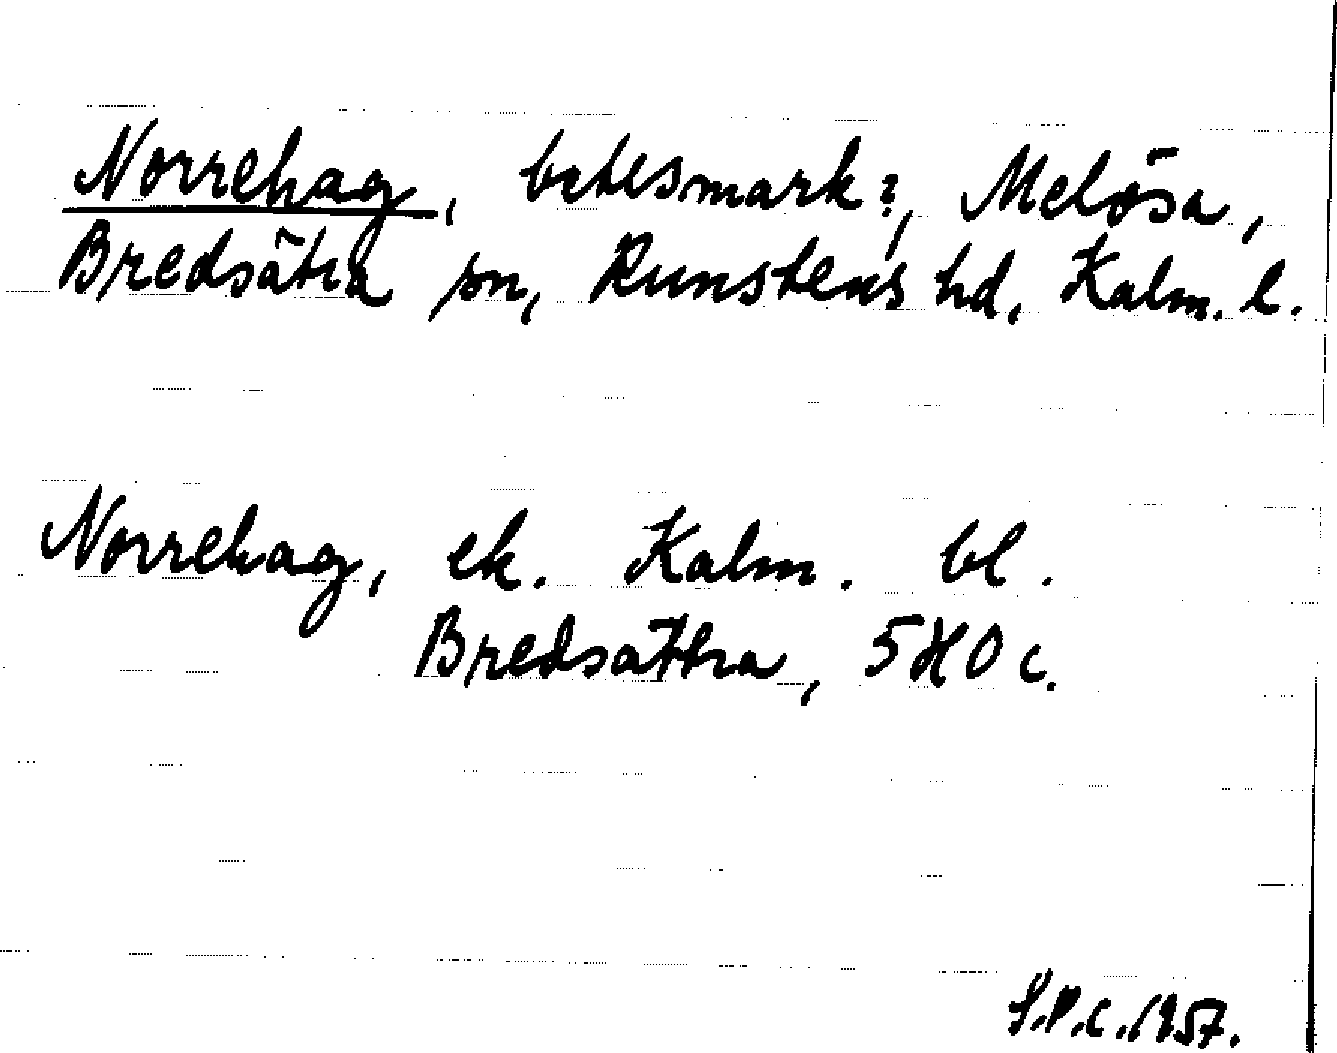 Norrehag, betesmark?, Melösa,
Bredsätra sn, Runstens hd, Kalm. l.
Norrehag, ek. Kalm. bl.
Bredsättra, 5H0c.
S.P.C. 1957.